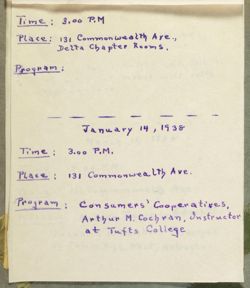 Time: 3.00 P.M
Place: 131 Commonwealth Ave.,
Delta Chapter Rooms.
Program:
January 14, 1938
Time: 3.00 P.M.
Place: 131 Commonwealth Ave.
Program: Consumers' Cooperatives,
Arthur M. Cochran, Instructor
at Tufts College